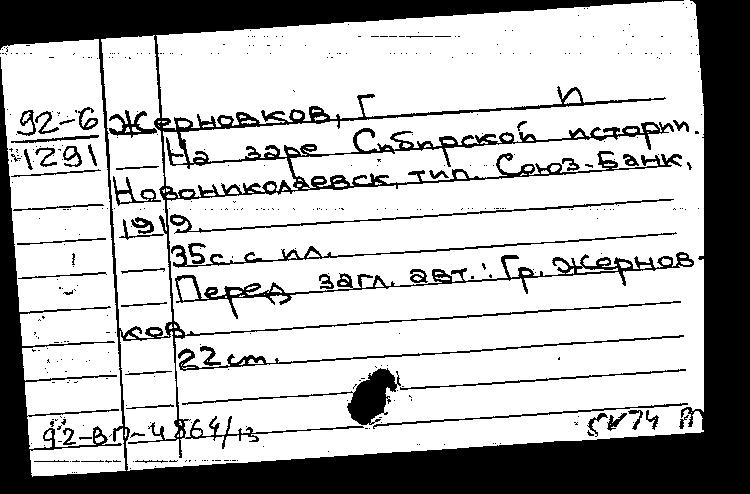 92-6 Жерновков, Г И
1291 На заре Сибирской истории.
Новониколаевск, тип. Союз-Банк,
1919.
35 с. с ил.
Перед загл. авт.: Гр. Жернов-
ков.
22 cm.
92-ВП-4864/13